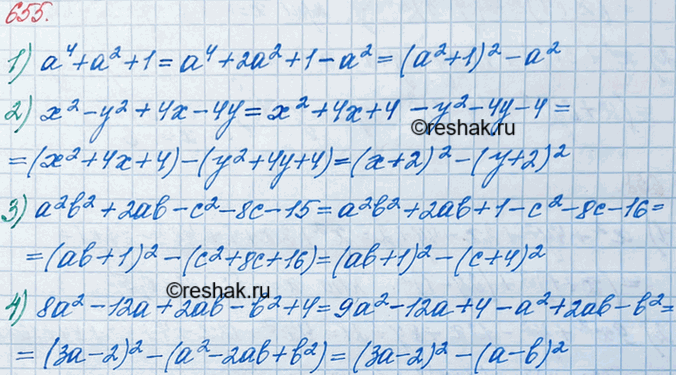 655.
1) a⁴+a²+1=a⁴+2a²+1-a²=(a²+1)²-a²
2) x²-y²+4x-4y=x²+4x+4-y²-4y-4=
©reshak.ru
=(x²+4x+4)-(y²+4y+4)=(x+2)²-(y+2)²
3) a²b²+2ab-c²-8c-15=a²b²+2ab+1-c²-8c-16=
=(ab+1)²-(c²+8c+16)=(ab+1)²-(c+4)²
©reshak.ru
4) 8a²-12a+2ab-b²+4=9a²-12a+4-a²+2ab-b²=
=(3a-2)²-(a²-2ab+b²)=(3a-2)²-(a-b)²